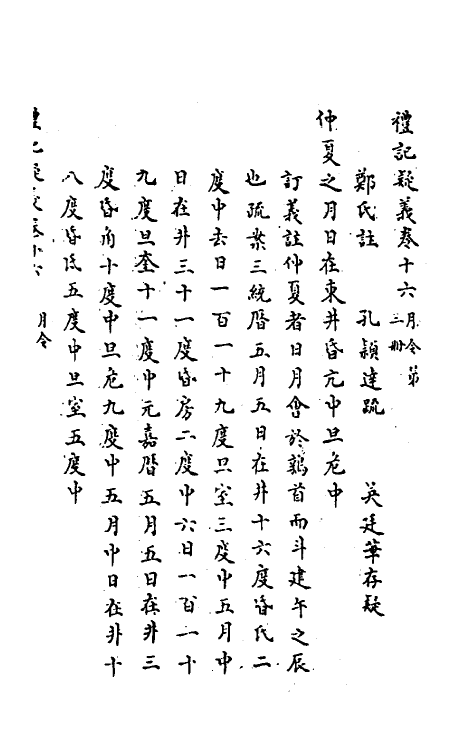 禮記疑義卷十六月令第三冊
鄭氏註 孔穎達疏 吳廷華存疑
仲夏之月日在東井昏亢中旦危中
訂義註仲夏者日月會於鶉首而斗建午之辰
也疏案三統曆五月五日在井十六度昏氐二
度中去日一百一十九度旦室三度中五月中
日在井三十一度昏房二度中六日一百一十
九度旦奎十一度中元嘉曆五月五日在井三
度昏角十度中旦危九度中五月中日在井十
八度昏氐五度中旦室五度中
禮記疑義卷十六 月令